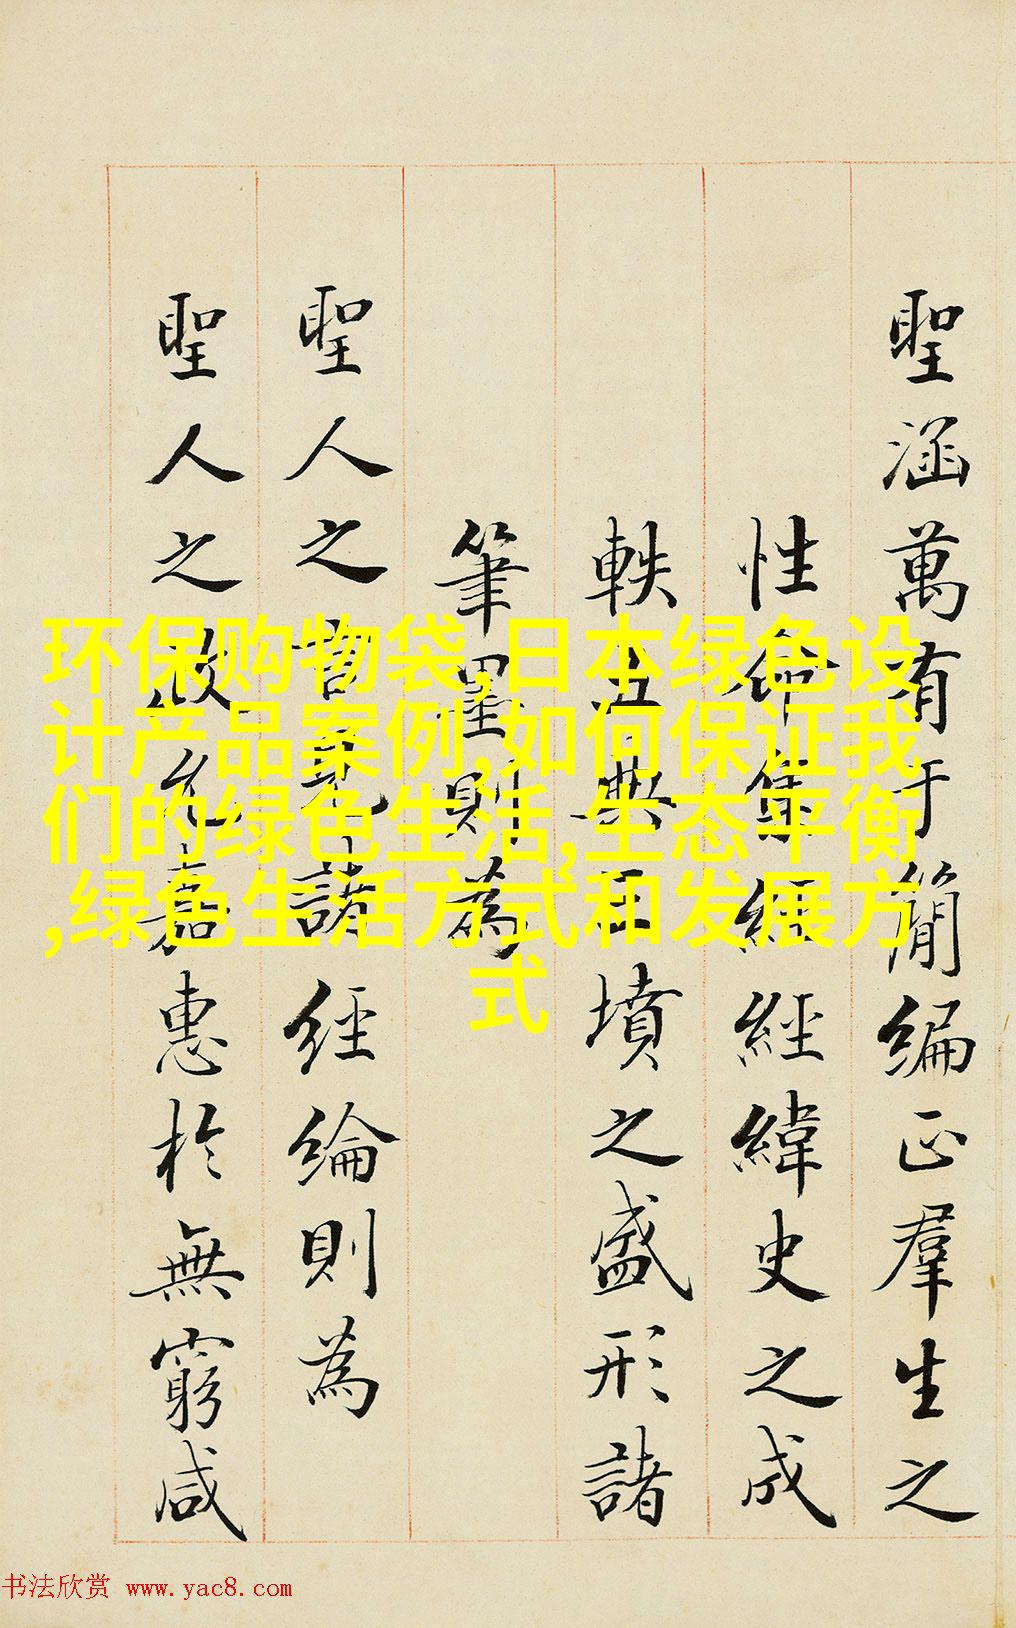 聖涵萬有于簡編正羣生之
性命集經經緯史之成
軼五典三墳之盛形諸
筆墨則為
聖人之言見諸經綸則為
聖人之政允嘉惠於無窮咸
环保购物袋,日本绿色设
计产品案例,如何保证我
们的绿色生活,生态平衡
,绿色生活方式和发展方
式
书法欣赏 www.yac8.com